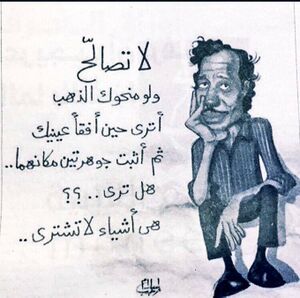 لا تصالح
ولو منحوك الذهب
أترى حين أفقأ عينيك
ثم أثبت جوهرتين مكانهما..
هل ترى..؟؟
هى أشياء لا تشترى..